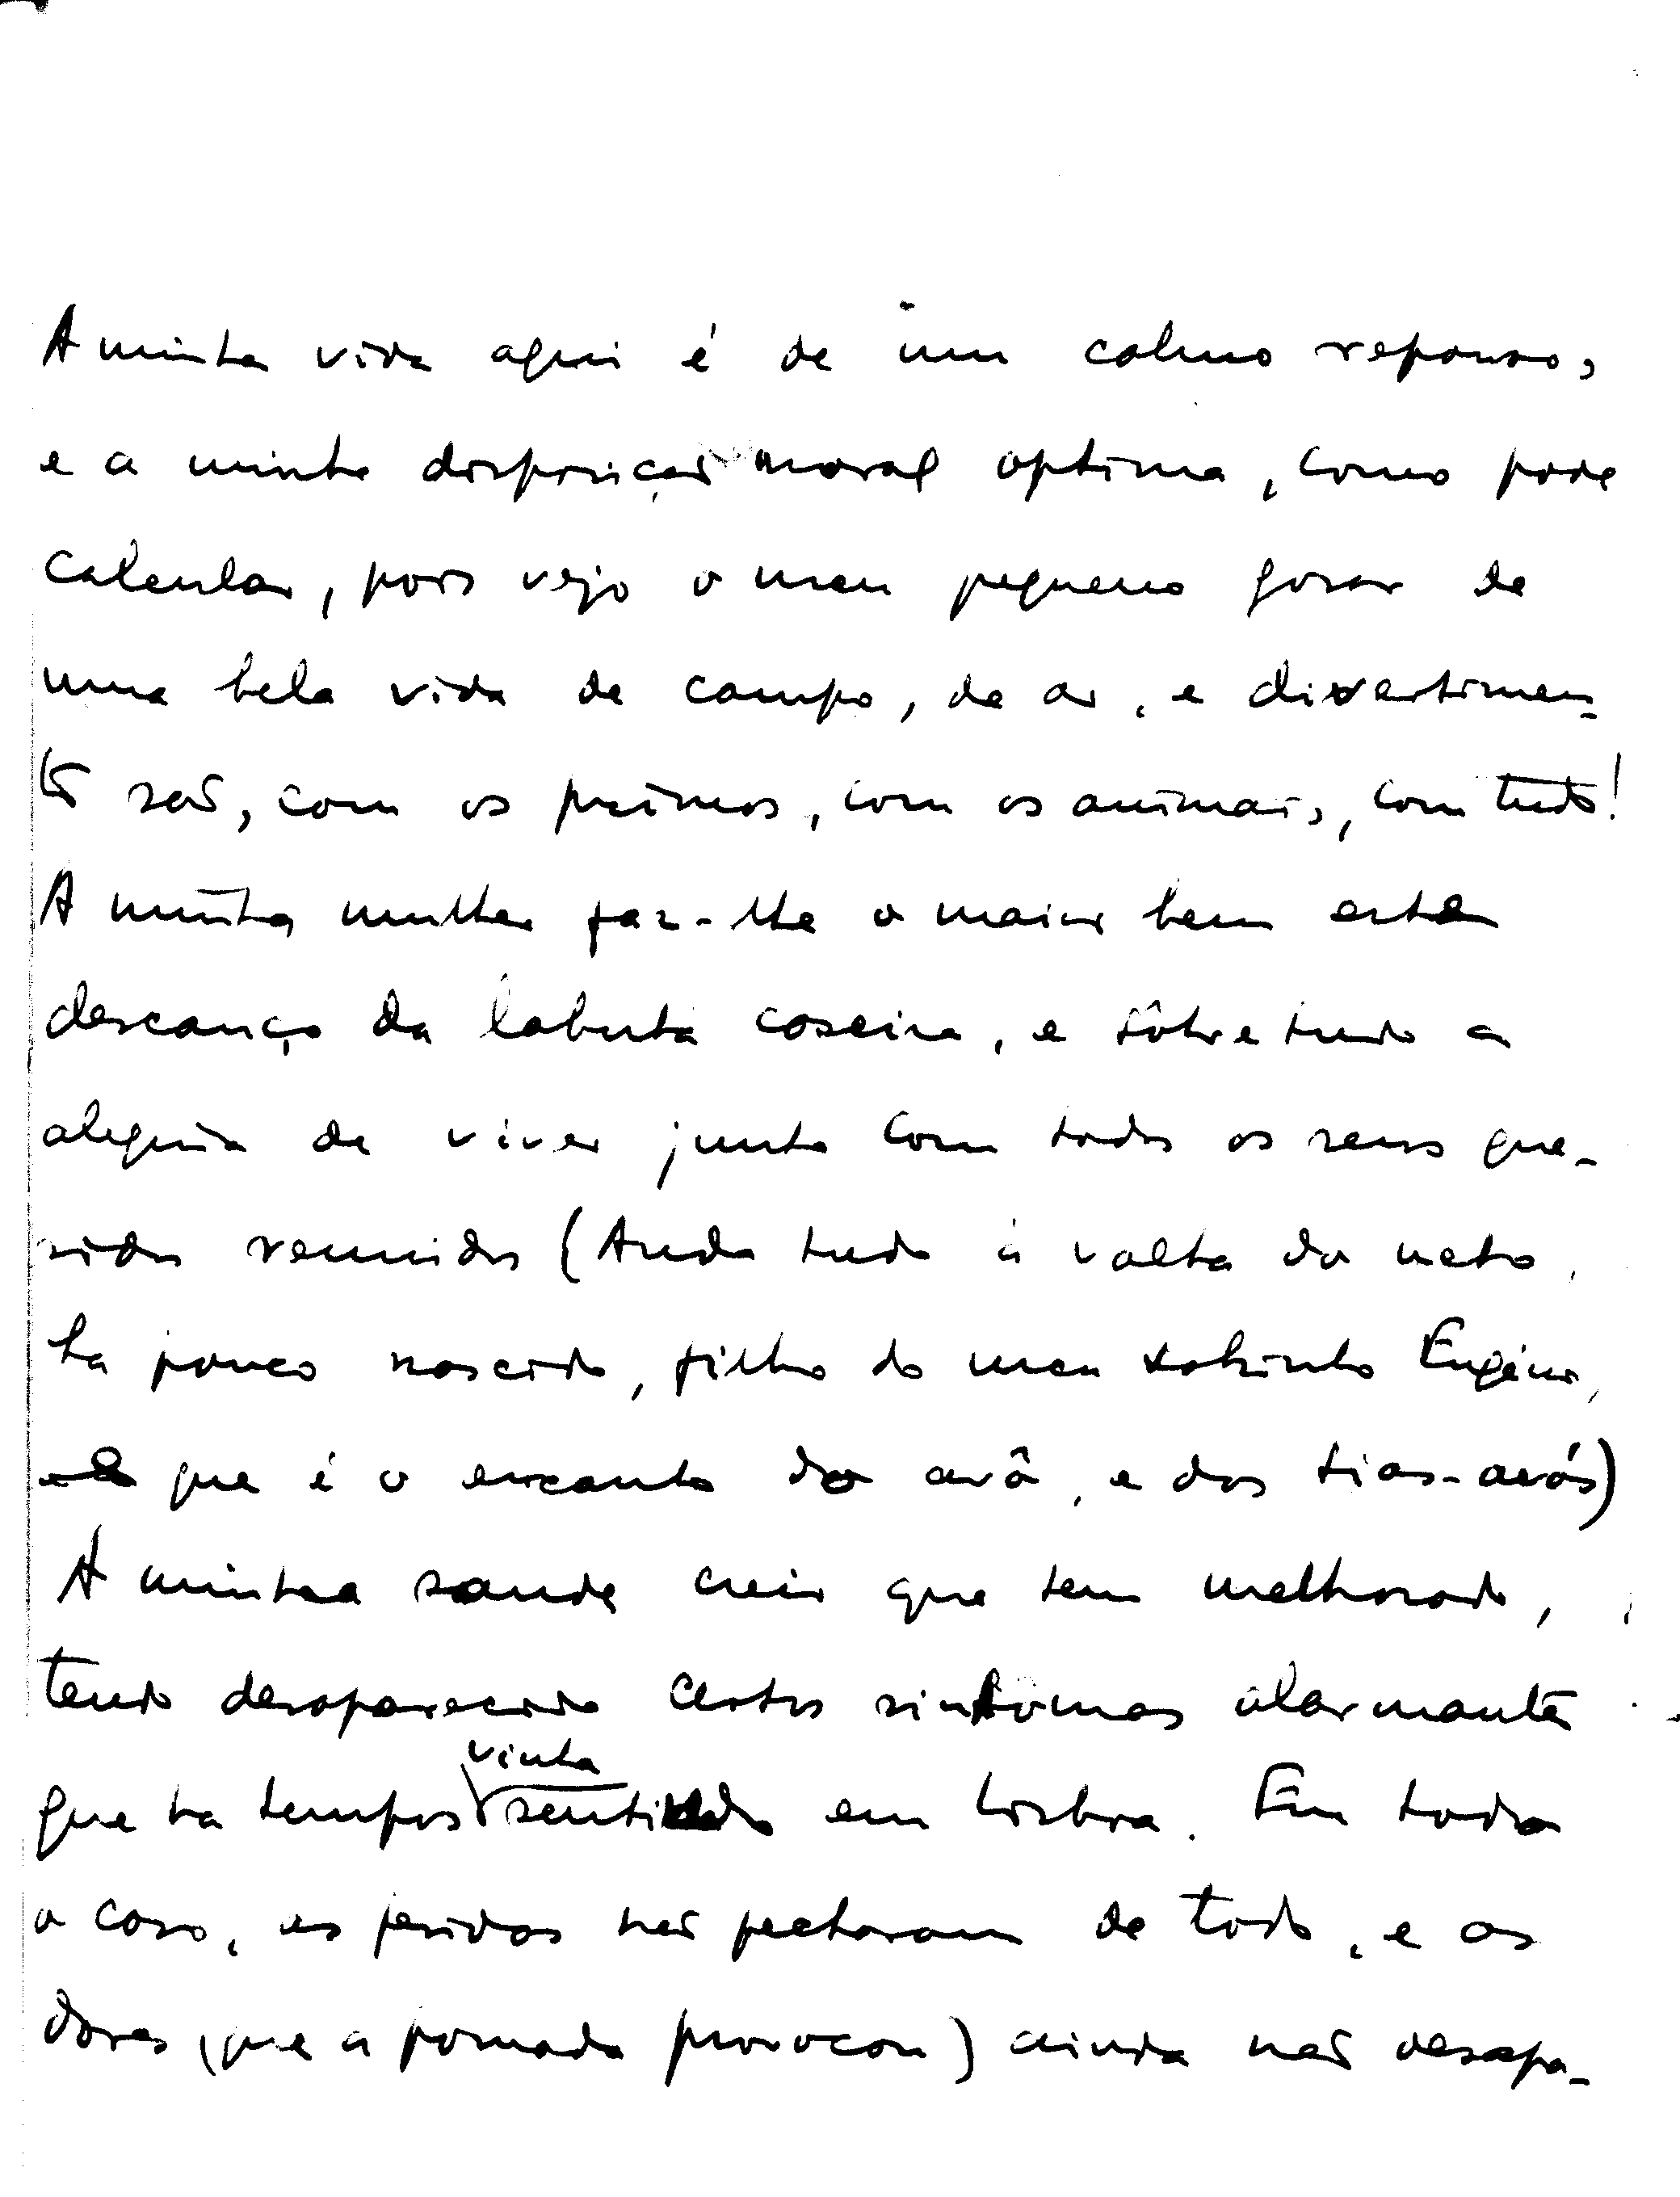 A minha vida aqui é de um calmo repouso,
e a minha disposição moral optima, como pode
calcular, pois vejo o meu pequeno gosar de
uma bela vida de campo, de ar, e divertimen-
to são, com os primos, com os animais, com tudo!
A minha mulher faz-lhe o maior bem este
descanço da labuta caseira, e sôbretudo a
alegria de viver junta com todos os seus que-
ridos reunidos (Anda tudo à volta do neto,
ha pouco nascido, filho do meu sobrinho Eugénio,
que é o encanto do avô, e dos tios-avós)
A minha saude creio que tem melhorado,
tendo desaparecido certos sintomas alarmantes
que ha tempos vinha sentindo em Lisboa. Em todo
o caso, as feridas não fecharam de todo, e as
dores (que a pomada provocou) ainda não desapa-